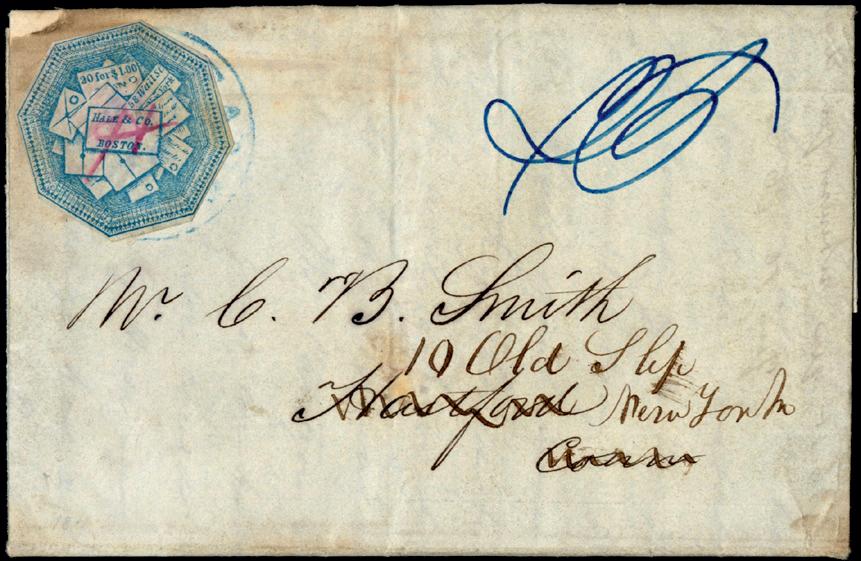 20 for $1.00
HALE & Co.
BOSTON.
Mr. C. B. Smith
10 Old Slip
Hartford New York
Conn